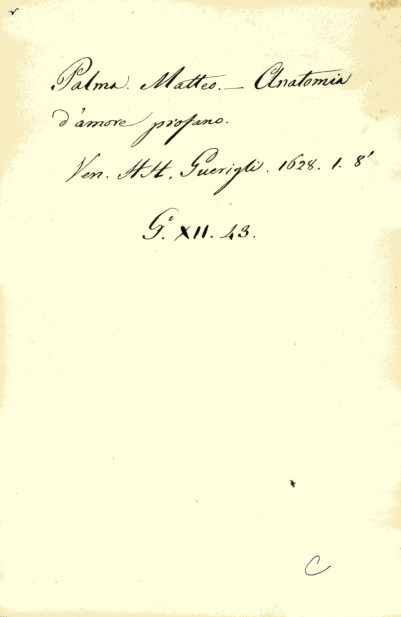 Palma. Matteo. — Anatomia
d'amore profano.
Ven. HH. Guerigli. 1628. 1. 8°
G.° XII. 43.
C